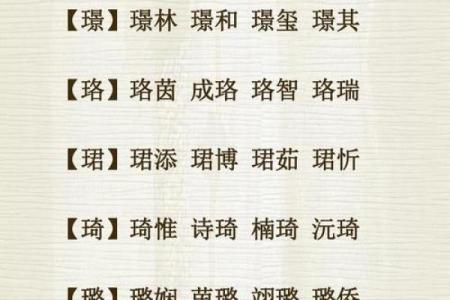 【璟】璟林 璟和 璟玺 璟其
【珞】珞茵 成珞 珞智 珞瑞
【珺】珺添 珺博 珺茹 珺忻
【琦】琦惟 诗琦 楠琦 沅琦
【璐】璐娴 茵璐 翊璐 璐侨